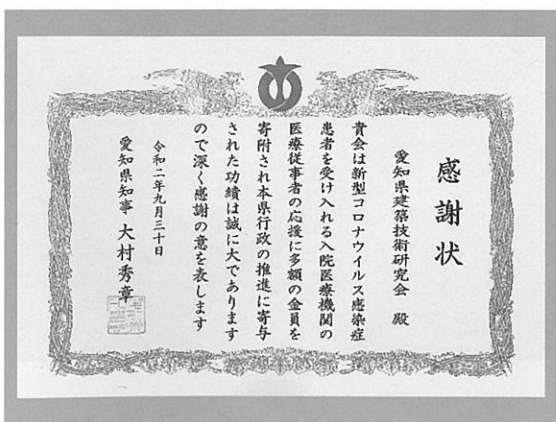 感謝状
愛知県建築技術研究会 殿
貴会は新型コロナウイルス感染症
患者を受け入れる入院医療機関の
医療従事者の応援に多額の金員を
寄附され本県行政の推進に寄与
された功績は誠に大であります
ので深く感謝の意を表します
令和二年九月三十日
愛知県知事 大村秀章